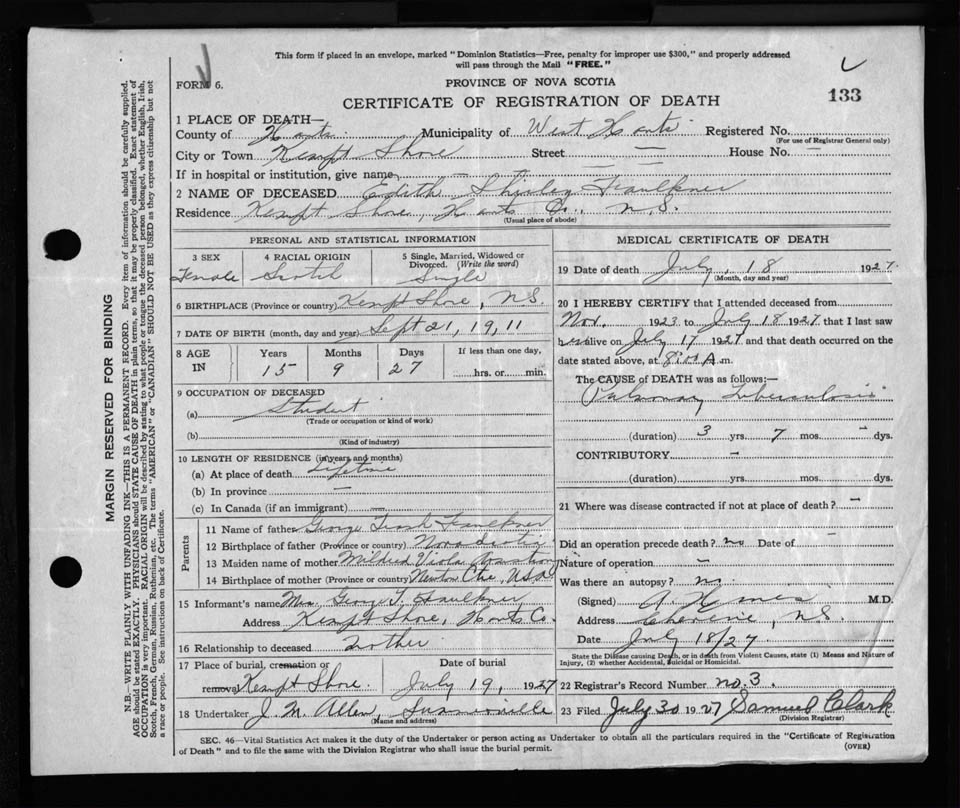 This form if placed in an envelope, marked "Dominion Statistics—Free, penalty for improper use $300," and properly addressed
will pass through the Mail "FREE."
FORM 6.
PROVINCE OF NOVA SCOTIA
CERTIFICATE OF REGISTRATION OF DEATH
133
1 PLACE OF DEATH—
County of Hants Municipality of West Hants Registered No.
(For use of Registrar General only)
City or Town Kempt Shore Street — House No. —
If in hospital or institution, give name — — —
2 NAME OF DECEASED Edith Shirley Faulkner
Residence Kempt Shore, Hants Co., N.S.
(Usual place of abode)
PERSONAL AND STATISTICAL INFORMATION
3 SEX 4 RACIAL ORIGIN 5 Single, Married, Widowed or Divorced. (Write the word)
Female Scotch Single
6 BIRTHPLACE (Province or country) Kempt Shore, N.S.
7 DATE OF BIRTH (month, day and year) Sept 21, 1911
8 AGE IN Years Months Days If less than one day,
15 9 27 hrs. or min.
9 OCCUPATION OF DECEASED
(a) Student
(Trade or occupation or kind of work)
(b)
(Kind of industry)
10 LENGTH OF RESIDENCE (in years and months)
(a) At place of death Lifetime
(b) In province —
(c) In Canada (if an immigrant) —
Parents
11 Name of father George Faulkner
12 Birthplace of father (Province or country) Nova Scotia
13 Maiden name of mother Mildred Viola
14 Birthplace of mother (Province or country) Newton Ctre, USA
15 Informant's name Mrs George T. Faulkner
Address Kempt Shore, Hants Co.
16 Relationship to deceased Mother
17 Place of burial, cremation or removal Kempt Shore. Date of burial July 19, 1927
18 Undertaker J. M. Allen, Summerville
(Name and address)
MEDICAL CERTIFICATE OF DEATH
19 Date of death July, 18 1927.
(Month, day and year)
20 I HEREBY CERTIFY that I attended deceased from
Nov. 1923 to July 18 1927 that I last saw
her alive on July 17 1927 and that death occurred on the
date stated above, at 8:00 A.m.
The CAUSE of DEATH was as follows:—
Pulmonary Tuberculosis
(duration) 3 yrs. 7 mos. — dys.
CONTRIBUTORY —
(duration) yrs. mos. dys.
21 Where was disease contracted if not at place of death? —
Did an operation precede death? no Date of —
Nature of operation —
Was there an autopsy? no
(Signed) M.D.
Address Cheverie, N.S.
Date July 18/27.
State the Disease causing Death, or in death from Violent Causes, state (1) Means and Nature of
Injury, (2) whether Accidental, Suicidal or Homicidal.
22 Registrar's Record Number no 3.
23 Filed July 30 1927 Samuel Clark
(Division Registrar)
SEC. 46—Vital Statistics Act makes it the duty of the Undertaker or person acting as Undertaker to obtain all the particulars required in the "Certificate of Registration
of Death" and to file the same with the Division Registrar who shall issue the burial permit.
(OVER)
MARGIN RESERVED FOR BINDING
N.B.—WRITE PLAINLY WITH UNFADING INK—THIS IS A PERMANENT RECORD. Every item of information should be carefully supplied.
AGE should be stated EXACTLY. PHYSICIANS should STATE CAUSE OF DEATH in plain terms, so that it may be properly classified. Exact statement of
OCCUPATION is very important. RACIAL ORIGIN will be described by stating to what people or tongue the deceased person belonged, whether English, Irish,
Scotch, French, German, Russian, Ruthenian, etc. The terms "AMERICAN" or "CANADIAN" SHOULD NOT BE USED as they express citizenship but not
a race or people. See instructions on back of Certificate.